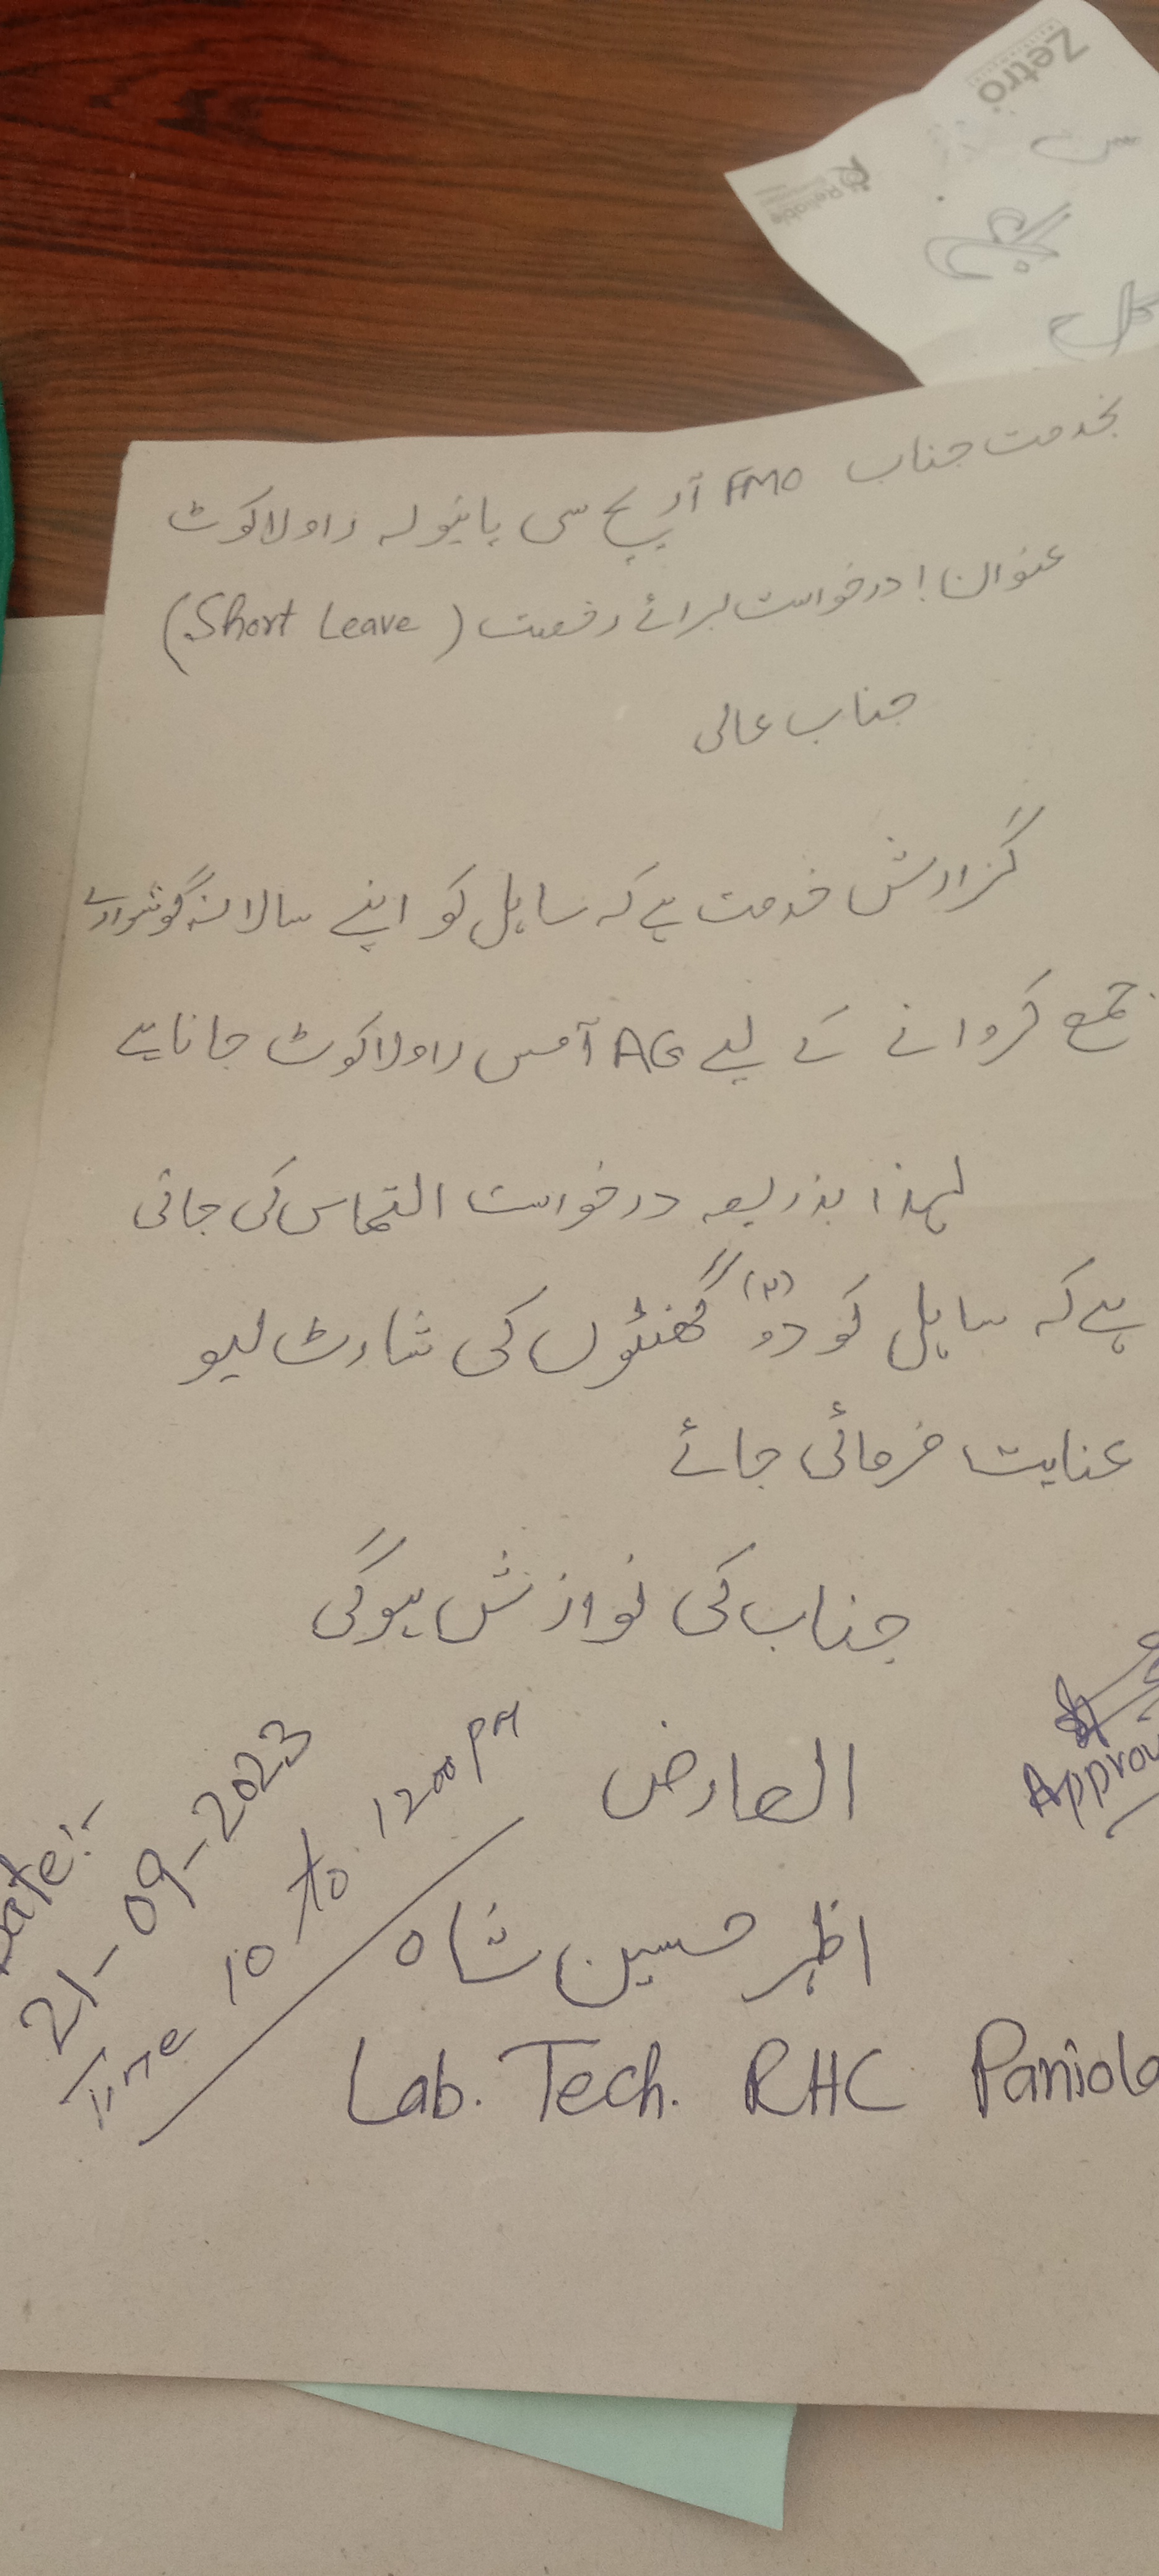 Zetro
Reliable
بخدمت جناب FMO آر ایچ سی پانیولہ راولاکوٹ
عنوان! درخواست برائے رخصت (Short Leave)
جناب عالی
گزارش خدمت ہے کہ سایل کو اپنے سالانہ گوشوارے
جمع کروانے کے لیے AG آفس راولاکوٹ جانا ہے
لہذا بذریعہ درخواست التماس کی جاتی
ہے کہ سایل کو دو (۲) گھنٹوں کی شارٹ لیو
عنایت فرمائی جائے
جناب کی نوازش ہوگی
العارض
اظہر حسین شاہ
Lab. Tech. RHC Paniola
Date:-
21-09-2023
Time 10 to 1200 PM